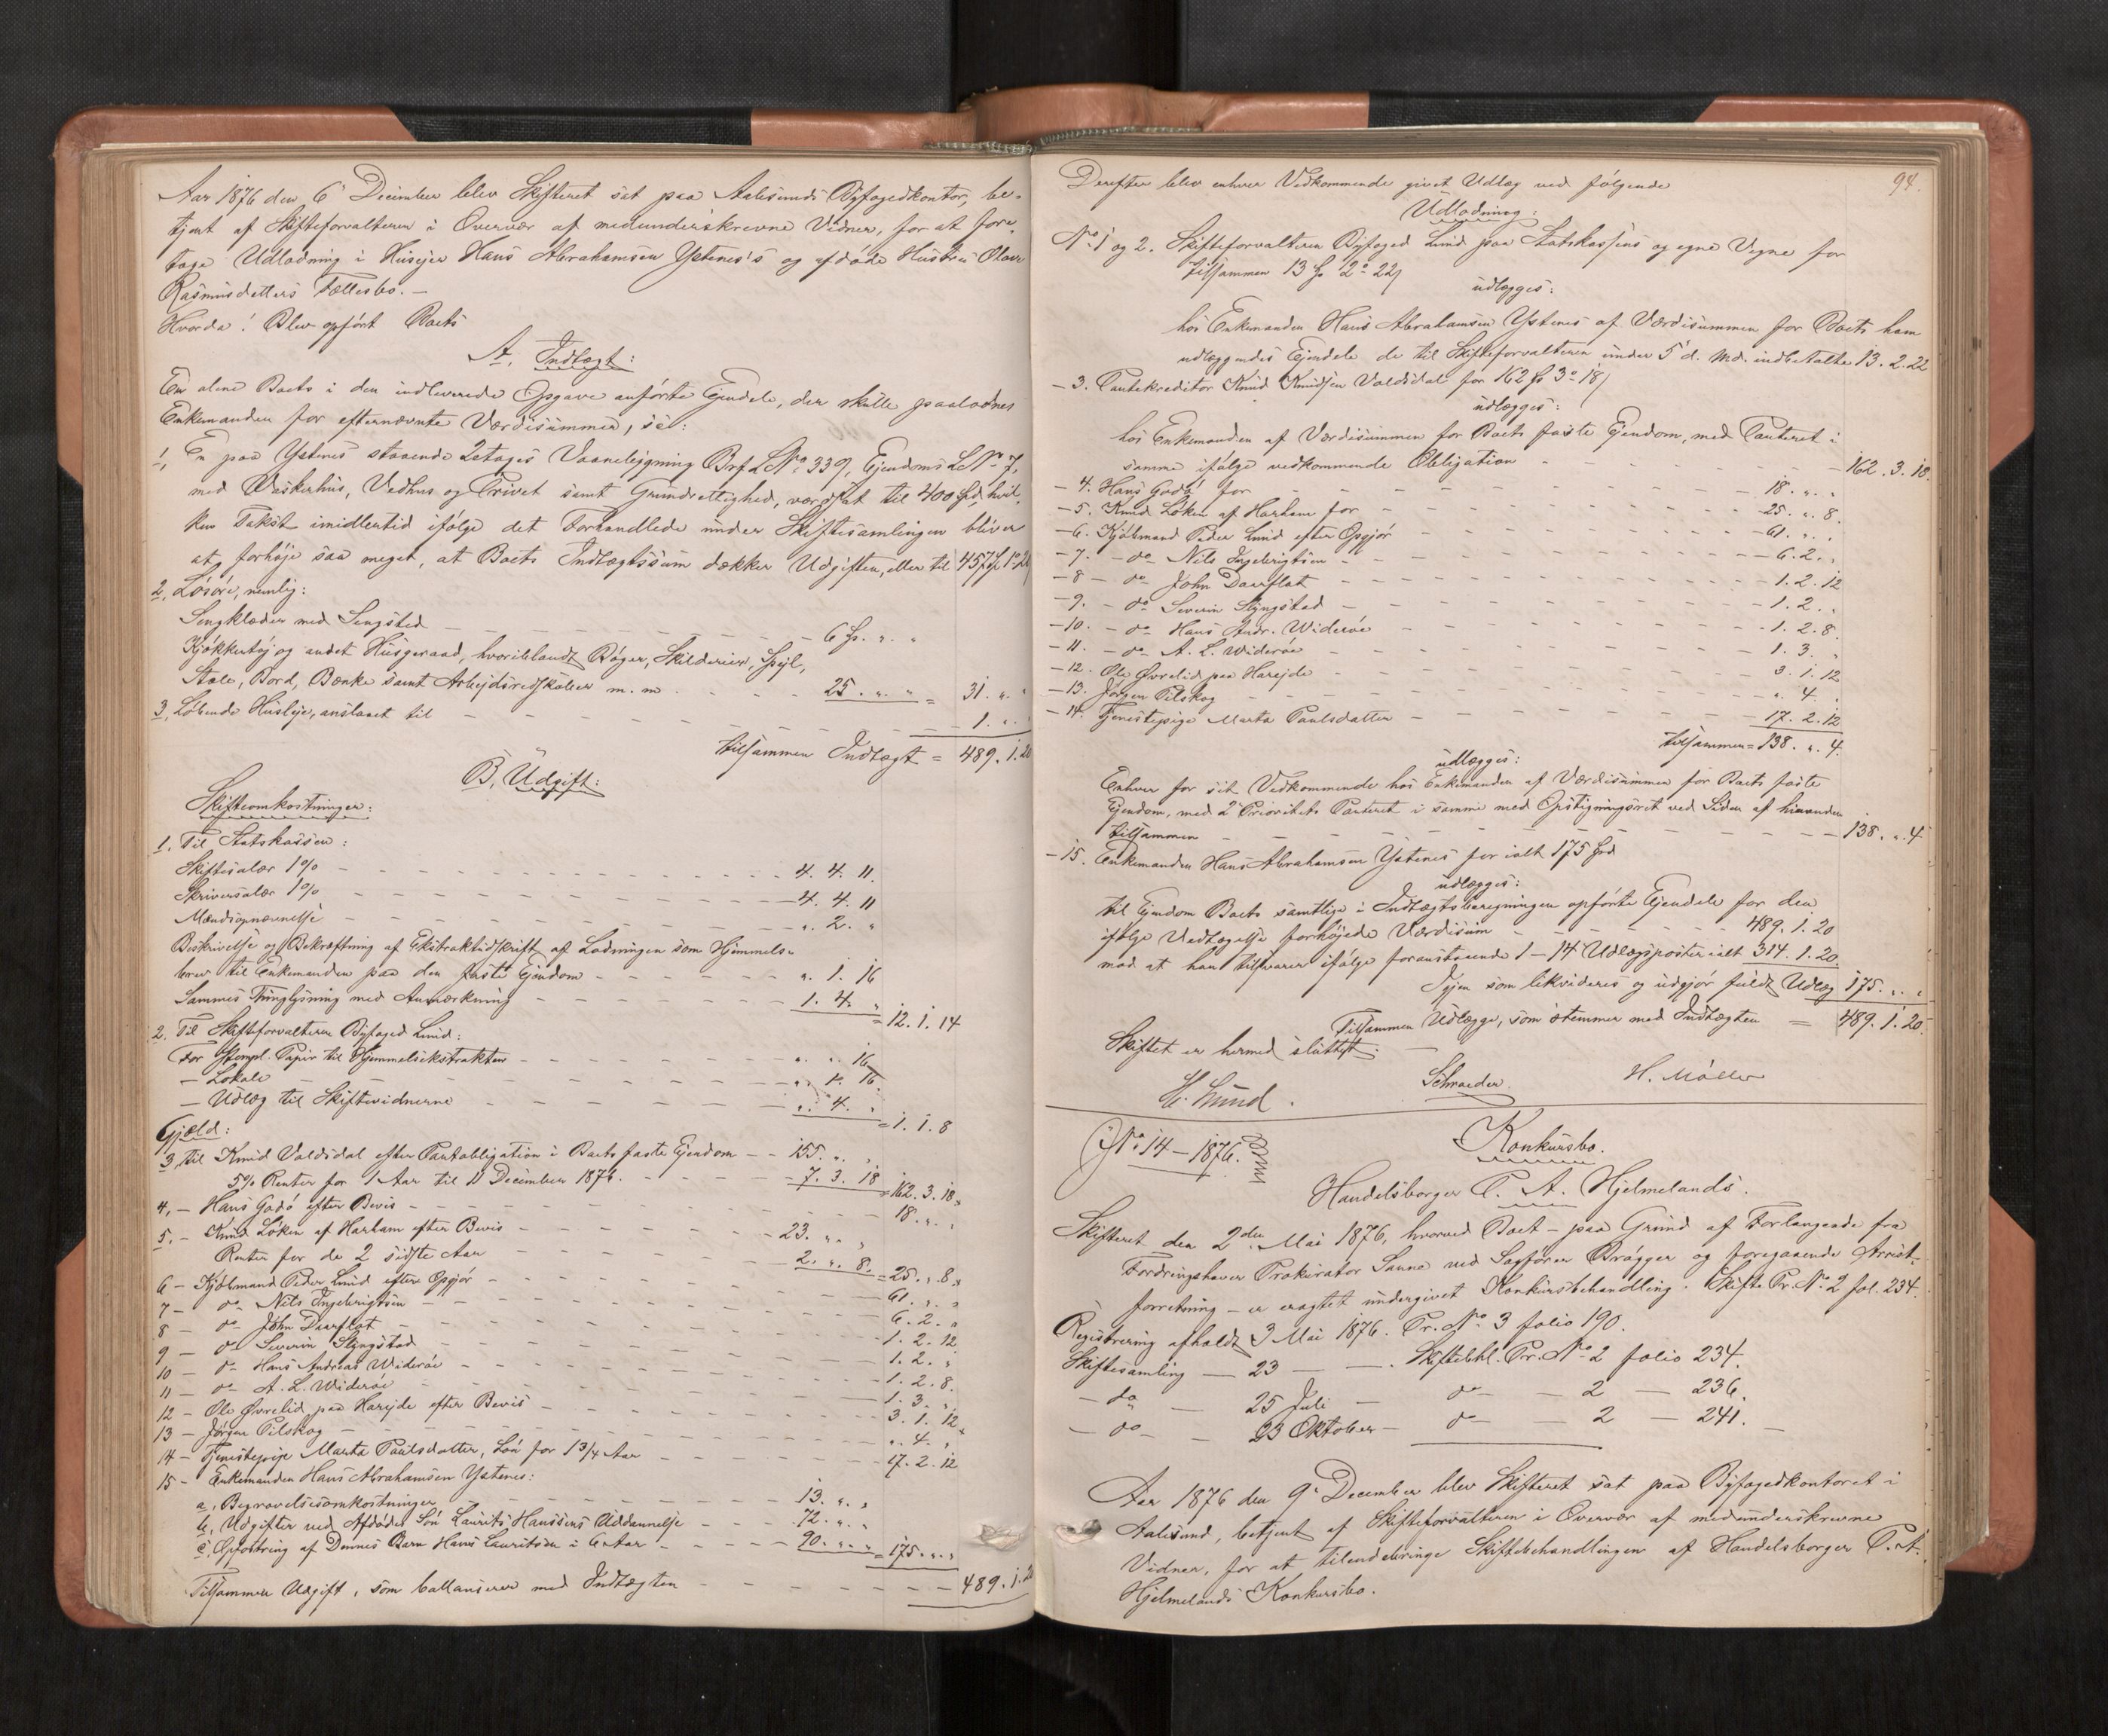 Aar 1876 den 6' December blev Skifteret sat paa Aalesunds Byfogedkontor, be-
tjent af Skifteforvalteren i Overvær af medunderskrevne Vidner, for at fore-
tage Udlodning i Husejer Hans Abrahamsen Ystenes's og afdøde Hustru Olave
Rasmusdatters Fællesbo. –
Hvorda! Blev opført Boets
A, Indtægt:
En alene Boets i den indleverede Opgave anførte Ejendele, der skulle paalodnes
Enkemanden for efternævnte Værdisummer, se:
1, En paa Ystenes staaende 2etages Vaanebygning Brf. L No. 339, Ejendoms L No 7,
med Vaskerhus, Vedhus og Privet samt Grundrettighed, værdsat til 400 Spd, hvil-
ken Takst imidlertid ifølge det Forhandlede under Skiftesamlingen bliver
at forhøje saa meget, at Boets Indtægtssum dækker Udgiften, eller til 457 Sp 1 o 20
2, Løsøre, nemlig:
Sengklæder med Sengsted – – – 6 Sp. " "
Kjøkkentøj og andet Husgeraad, hvoriblandt Bøger, Skilderier, Spejl,
Stole, Bord, Bænke samt Arbejdsredskaber m. m. – – 25. " " = 31. " "
3, Løbende Husleje, anslaaet til – – – 1. " "
tilsammen Indtægt = 489. 1. 20
B, Udgift:
Skifteomkostninger:
1. Til Statskassen:
Skiftesalær 1% – – – 4. 4. 11.
Skriversalær 1% – – – 4. 4. 11
Mændsopnævnelse – – – ". 2. "
Beskrivelse og Bekræftning af Ekstraktudskrift af Lodningen som Hjemmels-
brev til Enkemanden paa den faste Ejendom – – – ". 1. 16
Sammes Thinglysning med Anmærkning – – – 1. 4. " = 12. 1. 14
2. Til Skifteforvalteren Byfoged Lund:
For Stempl. Papir til Hjemmelsekstrakten – – – ". ". 16
– Lokale – – – ". 1. 16.
– Udlæg til Skiftevidnerne – – – ". 4. " = 1. 1. 8
Gjæld:
3, til Knud Valdsdal efter Pantobligation i Boets faste Ejendom – – 155. " "
5% Renter for 1 Aar til 11 December 1876. – – 7. 3. 18 = 162. 3. 18
4, – Hans Godø efter Bevis – – – 18. " "
5. – Knud Løken af Harham efter Bevis – – – 23. " "
Renter for de 2 sidste Aar – – – 2. ". 8. = 25. ". 8.
6 – Kjøbmand Peder Lund efter Opgjør – – – 61. " "
7 – do Nils Ingebrigtsen – – – 6. 2. "
8 – do John Daarflot – – – 1. 2. 12
9 – do Severin Slyngstad – – – 1. 2. "
10 – do Hans Andreas Widerøe – – – 1. 2. 8.
11 – do A. L. Widerøe – – – 1. 3. "
12 – Ole Øvrelid paa Harejde efter Bevis – – – 3. 1. 12
13 – Jørgen Pilskog – – – ". 4. "
14 – Tjenestepige Marta Paulsdatter, Løn for 1 3/4 Aar – – – 17. 2. 12
15 – Enkemanden Hans Abrahamsen Ystenes:
a, Begravelsesomkostninger – – – 13. " "
b, Udgifter ved Afdødes Søn Laurits Hanssens Uddannelse – – – 72. " "
c, Opfostring af Dennes Barn Hans Lauritsen i 6 Aar – – – 90. " " = 175. " "
Tilsammen Udgift, som ballanserer med Indtægten – – – 489. 1. 20
94.
Derefter blev enhver Vedkommende givet Udlæg ved følgende
Udlodning:
No 1 og 2. Skifteforvalteren Byfoged Lund paa Statskassens og egne Vegne for
tilsammen 13 Sp 2 o 22
udlægges:
hos Enkemanden Hans Abrahamsen Ystenes af Værdisummen for Boets ham
udlæggendes Ejendele de til Skifteforvalteren under 5' d. Md. indbetalte 13. 2. 22
– 3. Pantekreditor Knud Knudsen Valdsdal for 162 Sp 3 o 18
udlægges:
hos Enkemanden af Værdisummen for Boets faste Ejendom, med Panteret i
samme ifølge vedkommende Obligation – – – 162. 3. 18.
– 4. Hans Godø for – – – 18. " "
– 5. Knud Løken af Harham for – – – 25. ". 8.
– 6. Kjøbmand Peder Lund efter Opgjør – – – 61. " "
– 7. – do Nils Ingebrigtsen – – – 6. 2. "
– 8 – do John Daarflot – – – 1. 2. 12
– 9. – do Severin Slyngstad – – – 1. 2. "
– 10. – do Hans Andr. Widerøe – – – 1. 2. 8.
– 11. – do A. L. Widerøe – – – 1. 3. "
– 12. Ole Øvrelid paa Harejde – – – 3. 1. 12
– 13. Jørgen Pilskog – – – ". 4. "
– 14. Tjenestepige Marta Paulsdatter – – – 17. 2. 12
tilsammen = 138. ". 4.
udlægges:
Enhver for sit Vedkommende hos Enkemanden af Værdisummen for Boets faste
Ejendom, med 2' Prioritets Panteret i samme med Opstigningsret ved Siden af hinanden
tilsammen – – – 138. ". 4
– 15. Enkemanden Hans Abrahamsen Ystenes for ialt 175 Spd
udlægges:
til Ejendom Boets samtlige i Indtægtsberegningen opførte Ejendele for den
ifølge Vedtagelse forhøjede Værdisum – – – 489. 1. 20
mod at han tilsvarer ifølge foranstaaende 1 – 14 Udlægsposter ialt 314. 1. 20.
Igjen som likvideres og udgjør fuldt Udlæg 175. " "
Tilsammen Udlægge, som stemmer med Indtægten = 489. 1. 20.
Skiftet er hermed sluttet. –
H. Lund. Schrøeder. H. Møller
No 14 – 1876. Konkursbo.
Handelsborger P. A. Hjelmelands.
Skifteret den 2den Mai 1876, hvorved Boet – paa Grund af Forlangende fra
Fordringshaver Prokurator Sanne ved Sagfører Brøgger og foregaaende Arrest-
forretning – er eragtet undergivet Konkursbehandling. Skifte Pr. No 2 fol. 234.
Registrering afholdt 3 Mai 1876. Pr. No 3 folio 190.
Skiftesamling – 23 – – . Skiftebhl. Pr. No 2 folio 234.
– do – 25 Juli – do – 2 – 236.
– do – 23 Oktober – do – 2 – 241. –
Aar 1876 den 9' December blev Skifteret sat paa Byfogedkontoret i
Aalesund, betjent af Skifteforvalteren i Overvær af medunderskrevne
Vidner, for at tilendebringe Skiftebehandlingen af Handelsborger P. A.
Hjelmelands Konkursbo.